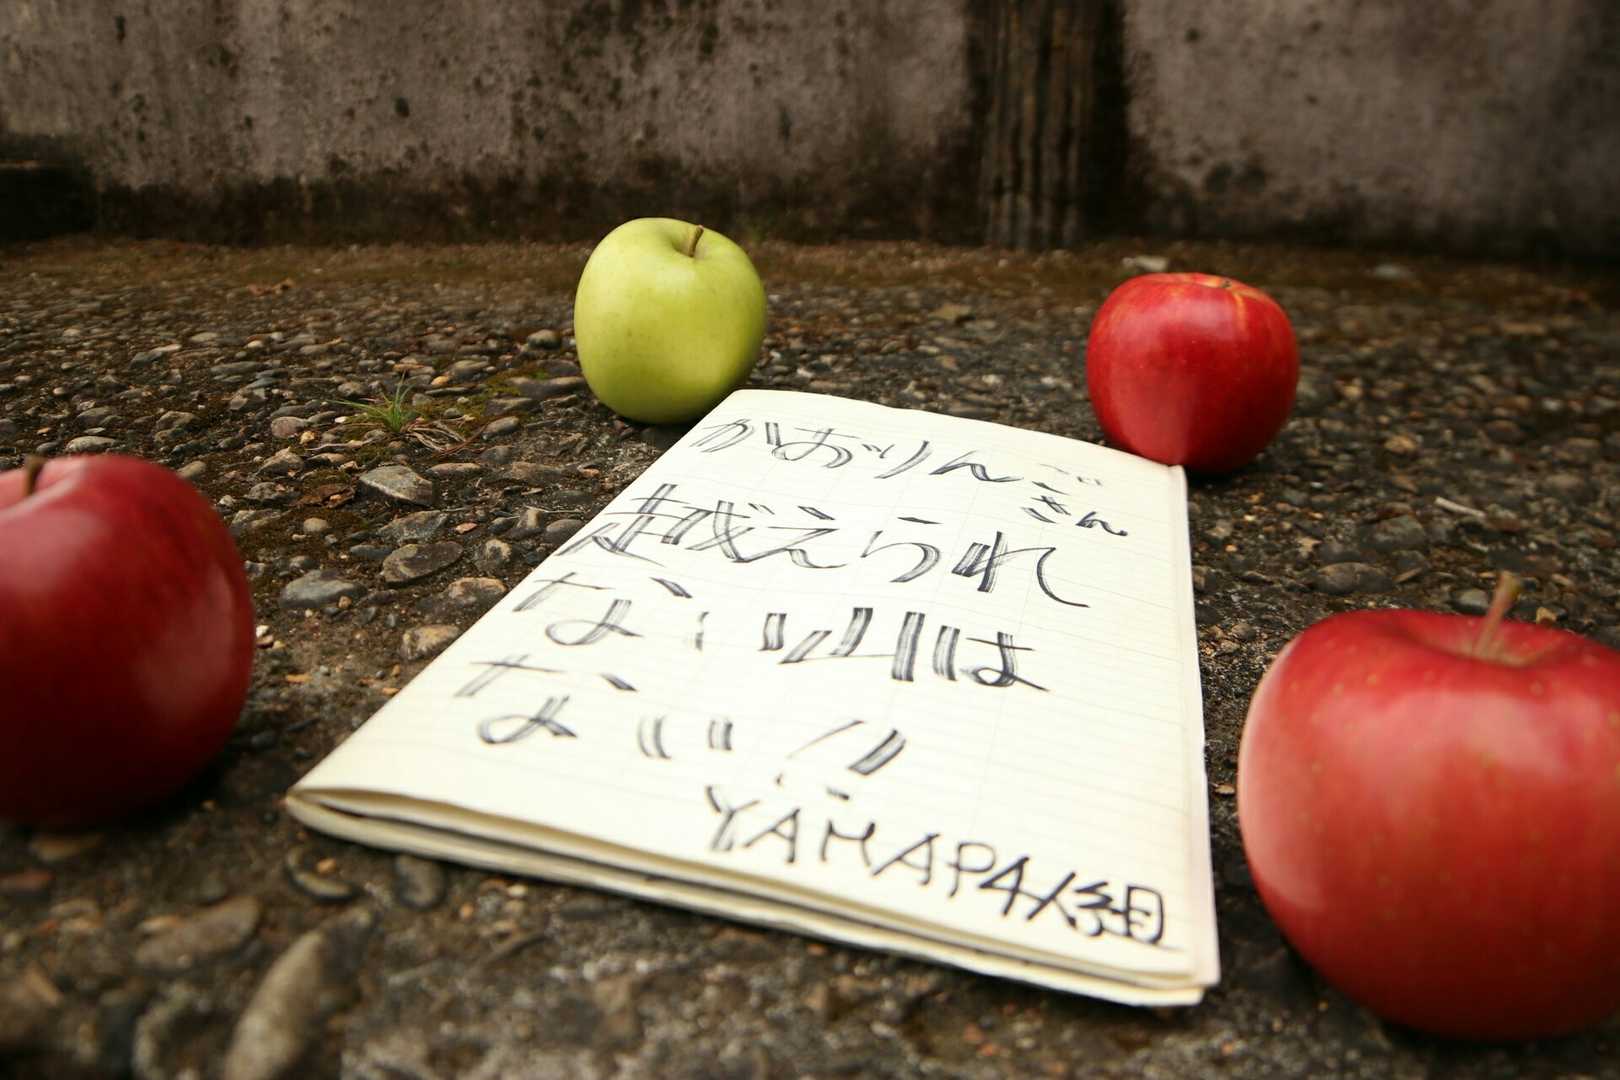 かおりんご
さん
越えられ
ない山は
ない!!
YAMAPA4人組